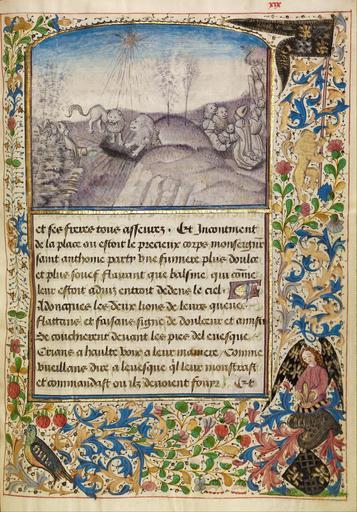 xix
et ses freres tous asseurez. Et Incontinent
de la place ou estoit le precieux corps monseignr
saint anthonie party une fumiere plus doulce
et plus souef flairant que balsme, qui come
leur estoit aduiz entroit dedens le ciel
Adoncques les deux lions de leurs queues
flattans et faisans signe de doulceur et
Se coucherent deuant les pies del euesque
Crians a haulte voix a leur maniere, Comme
veullans dire a leuesque ql leur monstrast
et commandast ou ilz deuoient fouyr. Et